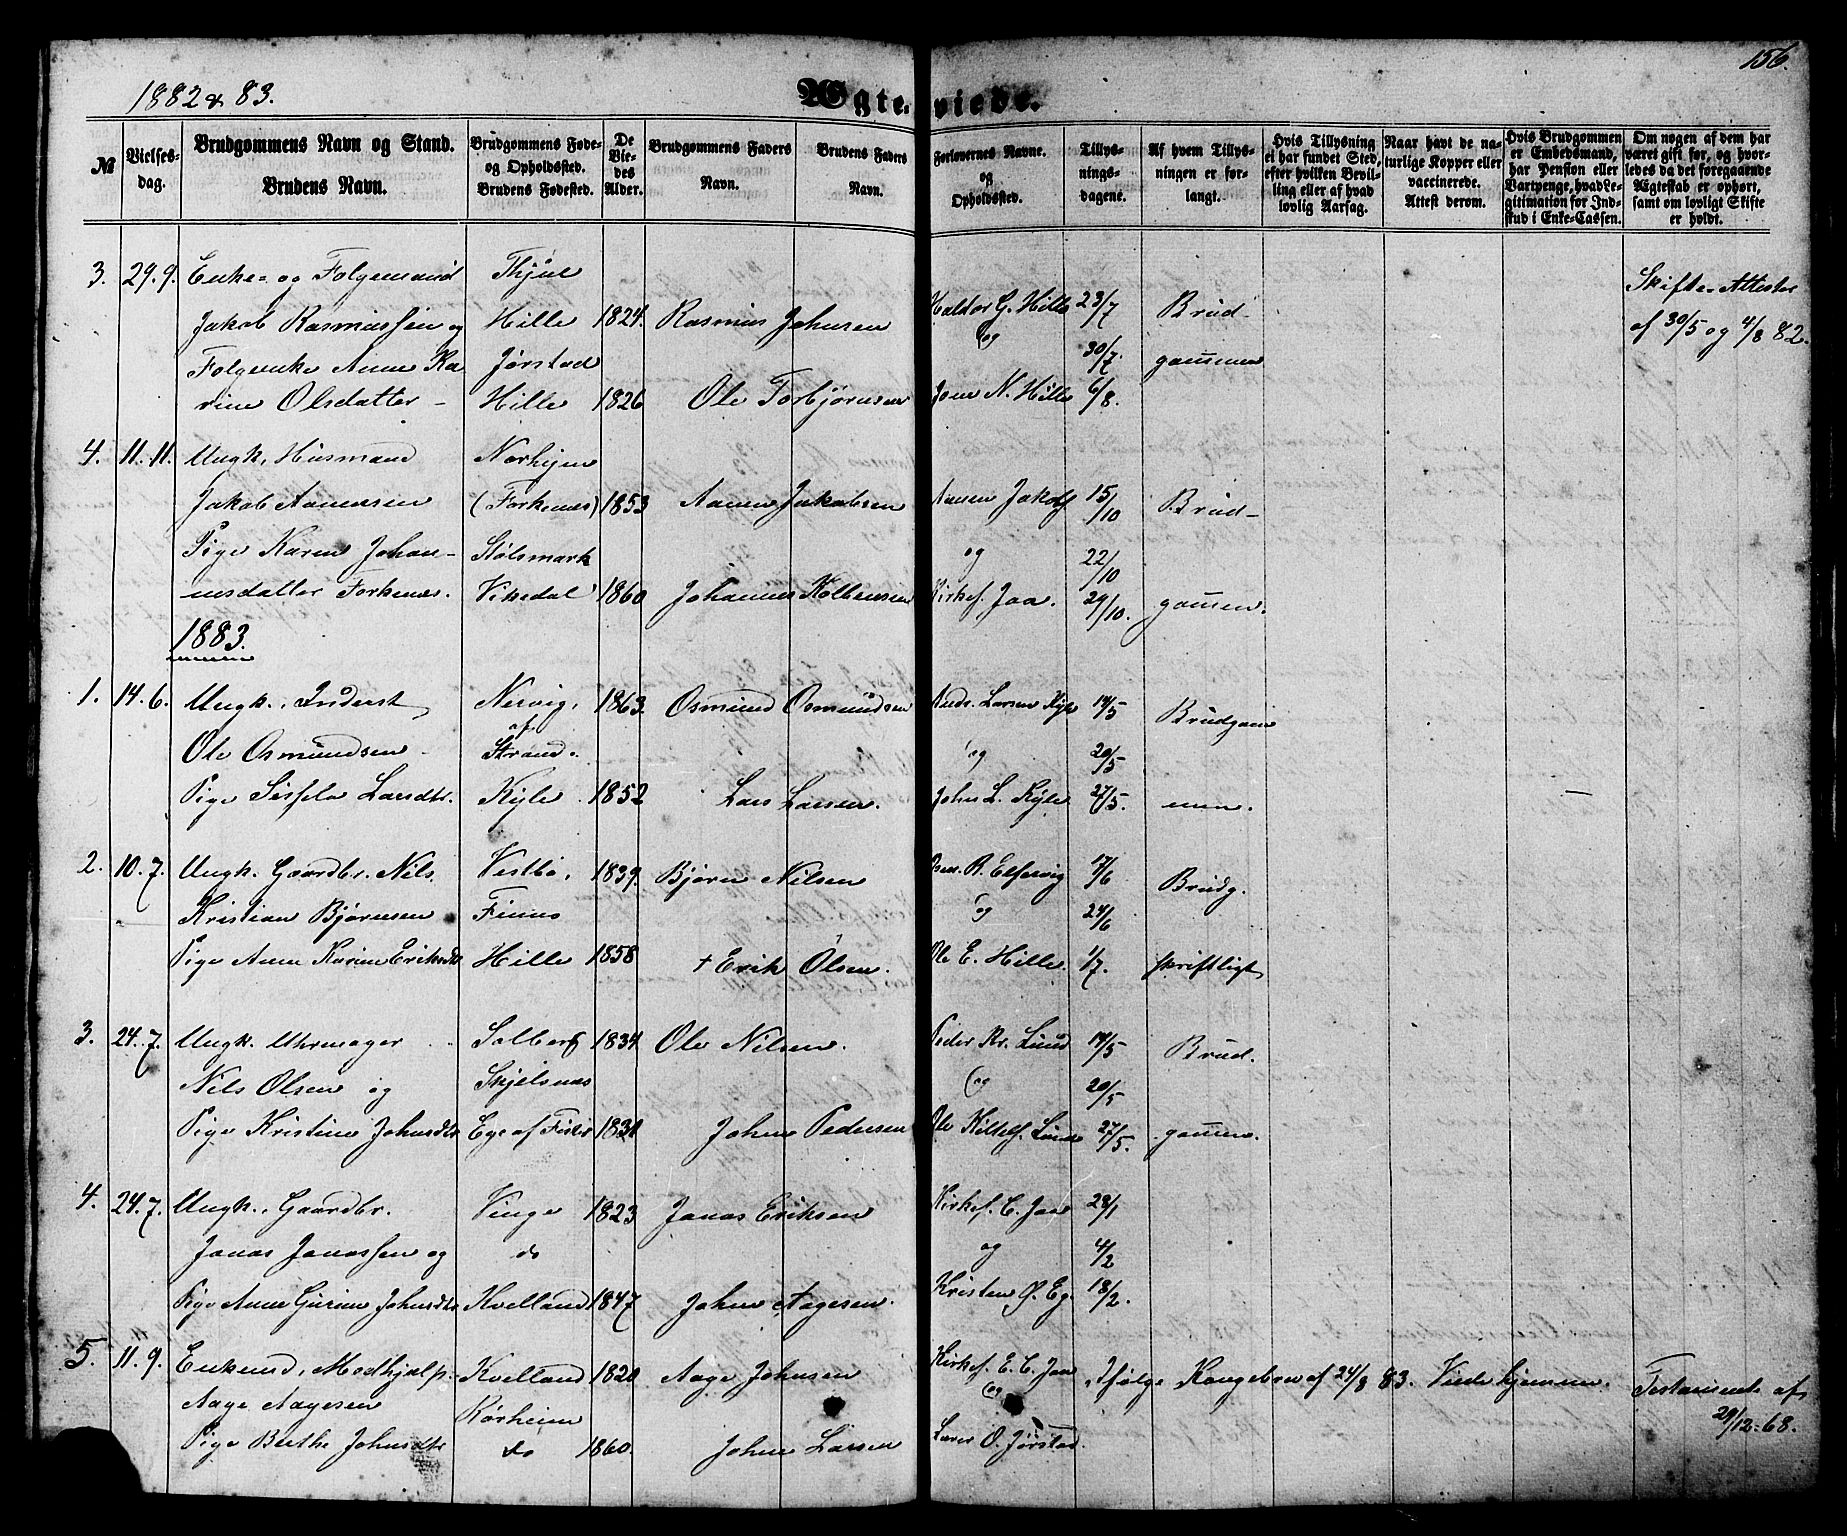 1882 & 83.
Ægteviede.
156.
№
Vielses-dag.
Brudgommens Navn og Stand.
Brudens Navn.
Brudgommens Føde- og Opholdssted.
Brudens Fødested.
De Viedes Alder.
Brudgommens Faders Navn.
Brudens Faders Navn.
Forlovernes Navne. og Opholdssted.
Tillysningsdagene.
Af hvem Tillysningen er forlangt.
Hvis Tillysning ei har fundet Sted, efter hvilken Bevilling eller af hvad lovlig Aarsag.
Naar havt de naturlige Kopper eller vaccinerede. Attest derom.
Hvis Brudgommen er Embedsmand, har Pension eller Vartpenge, hvad Legitimation for Indskud i Enke-Cassen.
Om nogen af dem har været gift før, og hvorledes da det foregaaende Ægteskab er ophørt, samt om lovligt Skifte er holdt.
3. 29.9. Enke- og Folgemand Thjül Skifte-Attester
Jakob Rasmussen og Hille 1824. Rasmus Johnsen Haldor G. Hille 23/7 Brud- af 30/5 og 4/8 82.
og
Folgeenke Anne Ka Jørstad 30/7. gommen
rine Olsdatter - Hille 1826 Ole Torbjørnsen Jone N. Hille 6/8.
4. 11.11. Ungk, Husmand Norheim
Jakob Aamosen (Forkenes) 1853 Aamen Jakobsen Aamen Jakobs 15/10 Brud-
Pige Karen Johan- Stølsmark og 22/10
nesdatter Forkenes. Vikedal 1860 Johannes Kolbensen Kirkes. Jaa. 29/10. gommen.
1883.
1. 14.6. Ungk., Inderst Nervig, 1863 Osmund Osmundsen Ands. Larsen Kyle 14/5 Brudgom
af
Ole Osmundsen Strand. og 20/5
Pige Sissela Larsdtr. Kyle. 1852 Lars Larsen. John L. Kyle 27/5. men.
2. 10.7. Ungk. Gaardbr. Nils Vestbø, 1839. Bjørn Nilsen R. Elfesvig 17/6 Brudg.
Kristian Bjørnsen Finnø og 24/6
Pige Anne Karine Eriksdtr Hille 1858 + Erik Olsen. Ole E. Hille. 1/7. skriftligt
3. 24.7. Ungk. Uhrmager Solberg 1834 Ole Nilsen. Peder Kr. Lund 14/5 Brud.
Nils Olsen og Skjelsnæs og 20/5
Pige Kristine Johnsdtr Ege af Fister 1831 John Pedersen Ole Kittels. Lund 27/5. gommen.
4. 24.7. Ungk., Gaardbr. Vinge 1823 Jonas Eriksen Kirkes. E. Jaa 28/1
Jonas Jonassen og do og 4/2
Pige Anne Gurine Johnsdtr Kvelland 1847 John Aagesen. Kristen O. Eg. 18/2.
5. 11.9. Enkemd, Medhjælp. Kvelland 1820 Aage Johnsen Kirkes. E. E. Jaa Ifølge Kongebrev af 24/8 83. Viede hjemme. Testamente af
Aage Aagesen Kørheim og 29/12-68.
Pige Berthe Johnsdtr do 1860. John Larsen Lærer O. Jørstad.